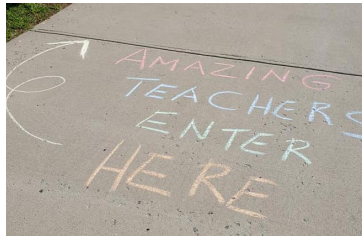 AMAZING
TEACHERS
ENTER
HERE